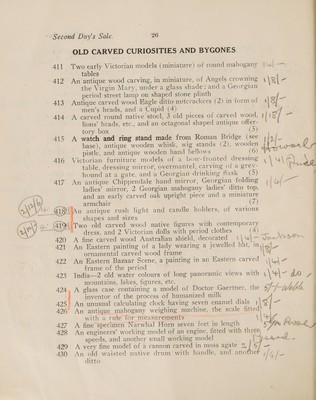 Second Day's Sale. 26
OLD CARVED CURIOSITIES AND BYGONES
411 Two early Victorian models (miniature) of round mahogany
tables
412 An antique wood carving, in miniature, of Angels crowning
the Virgin Mary, under a glass shade; and a Georgian
period street lamp on shaped stone plinth
413 Antique carved wood Eagle ditto nutcrackers (2) in form of
men's heads, and a Cupid (4)
414 A carved round native stool, 3 old pieces of carved wood,
lions' heads, etc., and an octagonal shaped antique offer-
tory box (5)
415 A watch and ring stand made from Roman Bridge (see
base), antique wooden whisk, wig stands (2), wooden
pistle, and antique wooden hand bellows (6)
416 Victorian furniture models of a bow-fronted dressing
table, dressing mirror, overmantel, carving of a grey-
hound at a gate, and a Georgian drinking flask (5)
417 An antique Chippendale hand mirror, Georgian folding
ladies' mirror, 2 Georgian mahogany ladies' ditto top,
and an early carved oak upright piece and a miniature
armchair (7)
418 An antique rush light and candle holders, of various
shapes and sizes
419 Two old carved wood native figures with contemporary
dress, and 2 Victorian dolls with period clothes (4)
420 A fine carved wood Australian shield, decorated
421 An Eastern painting of a lady wearing a jewelled hat, in
ornamental carved wood frame
422 An Eastern Bazaar Scene, a painting in an Eastern carved
frame of the period
423 India—2 old water colours of long panoramic views with
mountains, lakes, figures, etc.
424 A glass case containing a model of Doctor Gaertner, the
inventor of the process of humanised milk
425 An unusual calculating clock having seven enamel dials
426 An antique mahogany weighing machine, the scale fitted
with a rule for measurements
427 A fine specimen Narwhal Horn seven feet in length
428 An engineers' working model of an engine, fitted with three
speeds, and another small working model
429 A very fine model of a cannon carved in moss agate
430 An old waisted native drum with handle, and another
ditto